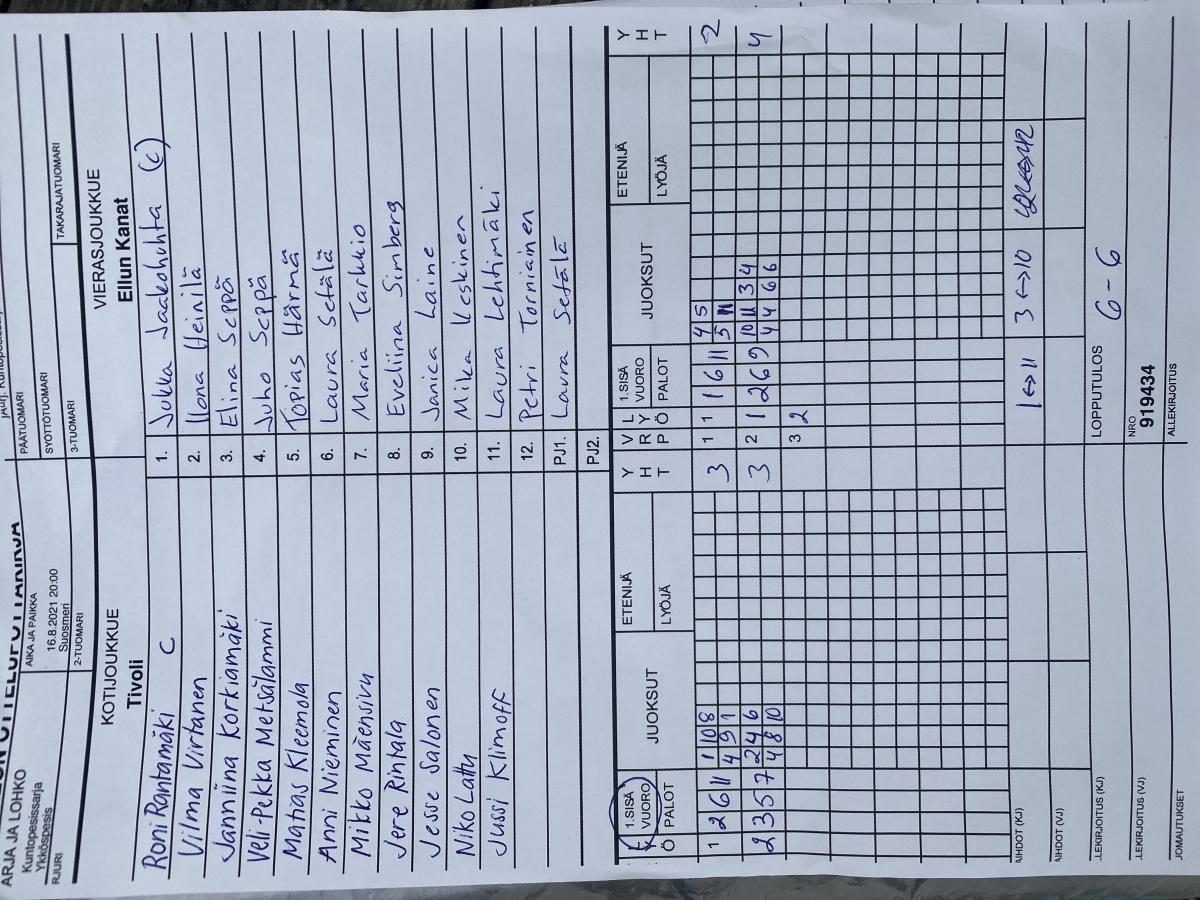 ARJA JA LOHKO
Kuntopesissarja
Ykköspesis
AIKA JA PAIKKA
16.8.2021 20:00
Suosmeri
PÄÄTUOMARI
SYÖTTÖTUOMARI
RJURI
2-TUOMARI
3-TUOMARI
TAKARAJATUOMARI
KOTIJOUKKUE
Tivoli
VIERASJOUKKUE
Ellun Kanat
Roni Rantamäki C
1. Jukka Jaakohuhta (c)
Vilma Virtanen
2. Ilona Heinilä
Janniina Korkiamäki
3. Elina Seppä
Veli-Pekka Metsälammi
4. Juho Seppä
Matias Kleemola
5. Topias Härmä
Anni Nieminen
6. Laura Setälä
Mikko Mäensivu
7. Maria Tarkkio
Jere Rinkala
8. Eveliina Simberg
Jesse Salonen
9. Janica Laine
Niko Lattu
10. Mika Keskinen
Jussi Klimoff
11. Laura Lehtimäki
12. Petri Torniainen
PJ1. Laura Setälä
PJ2.
1.SISÄ VUORO PALOT JUOKSUT ETENIJÄ LYÖJÄ YHT
VRP LYÖ 1.SISÄ VUORO PALOT JUOKSUT ETENIJÄ LYÖJÄ YHT
1 2 6 11 1 10 8 3
4 9 1
1 1 1 6 11 4 5 2
5 11
2 3 5 7 2 4 6 3
4 8 10
2 1 2 6 9 10 11 3 4 4
4 4 6 6
3 2
AIHDOT (KJ)
1<->11 3<->10
AIHDOT (VJ)
LLEKIRJOITUS (KJ)
LOPPUTULOS
6-6
LLEKIRJOITUS (VJ)
NRO
919434
JOMAUTUKSET
ALLEKIRJOITUS